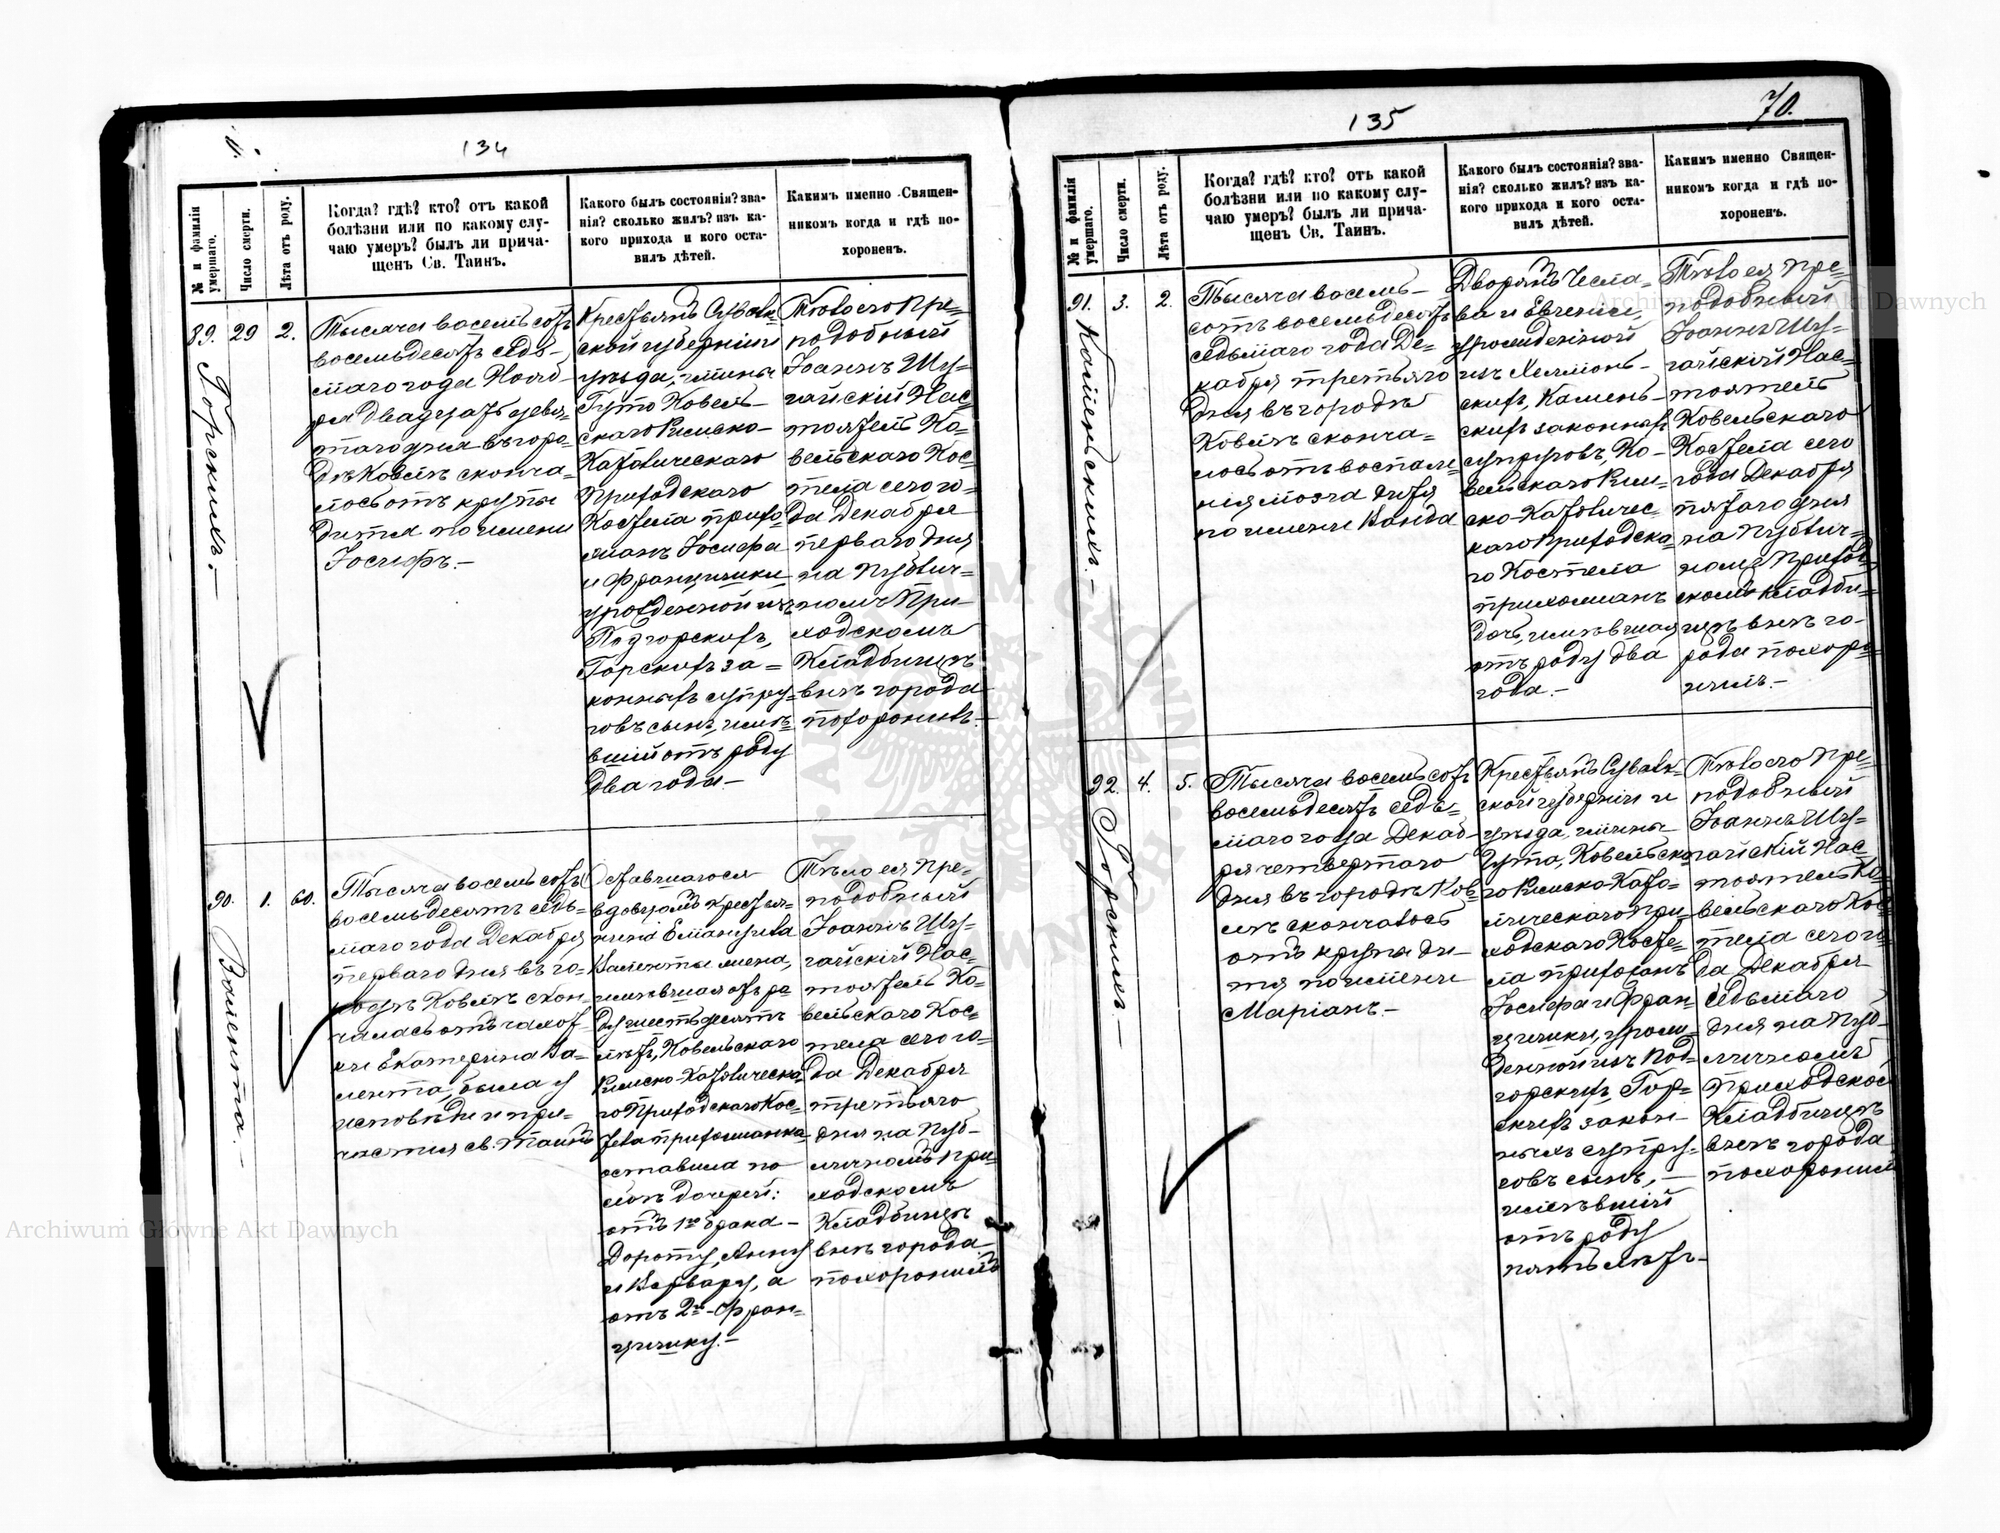 134
№ и фамилія умершаго.
Число смерти.
Лѣта отъ роду.
Когда? гдѣ? кто? отъ какой
болѣзни или по какому слу-
чаю умеръ? былъ ли прича-
щенъ Св. Таинъ.
Какого былъ состоянія? зва-
нія? сколько жилъ? изъ ка-
кого прихода и кого оста-
вилъ дѣтей.
Какимъ именно Священ-
никомъ когда и гдѣ по-
хороненъ.
89. Горскихъ.
29
2.
Тысяча восемьсотъ
восемьдесятъ седь-
маго года Нояб-
ря двадцать девя-
таго дня въ горо-
дѣ Ковлѣ сконча-
лось отъ крупа
дитя по имени
Іосифъ.
Крестьянъ Сувалк-
ской губерніи
уѣзда, гмины
Гуто Ковель-
скаго Римско-
Католическаго
Приходскаго
Костела прихо-
жанъ Іосифа
и Францишки
урожденной изъ
Подгорскихъ,
Горскихъ за-
конныхъ супру-
говъ сынъ, имѣ-
вшій отъ роду
два года.
Тѣло его Пре-
подобный
Іоаннъ Шу-
гайскій Нас-
тоятель Ко-
вельскаго Кос-
тела сего го-
да Декабря
перваго дня
на публич-
номъ При-
ходскомъ
Кладбищѣ
внѣ города
похоронилъ.
90. Валента.
1.
60.
Тысяча восемьсотъ
восемьдесятъ седь-
маго года Декабря
перваго дня въ го-
родѣ Ковлѣ скон-
чалась отъ чахот-
ки Екатерина Ва-
лента, была у
исповѣди и при-
частія св. Таинъ
Оставшагося
вдовцомъ крестья-
нина Емануила
Валенты жена,
имѣвшая отъ ро-
ду шестьдесятъ
лѣтъ, Ковельскаго
Римско-Католическа-
го Приходскаго Кос-
тела прихожанка
оставила по
себѣ дочерей:
отъ 1го брака -
Дороту, Анну
и Варвару, а
отъ 2го - Фран-
цишку.
Тѣло ея Пре-
подобный
Іоаннъ Шу-
гайскій Нас-
тоятель Ко-
вельскаго Кос-
тела сего го-
да Декабря
третьяго
дня на пуб-
личномъ При-
ходскомъ
Кладбищѣ
внѣ города
похоронилъ
135
70.
№ и фамилія умершаго.
Число смерти.
Лѣта отъ роду.
Когда? гдѣ? кто? отъ какой
болѣзни или по какому слу-
чаю умеръ? былъ ли прича-
щенъ Св. Таинъ.
Какого былъ состоянія? зва-
нія? сколько жилъ? изъ ка-
кого прихода и кого оста-
вилъ дѣтей.
Какимъ именно Священ-
никомъ когда и гдѣ по-
хороненъ.
91. Каменьскихъ.
3.
2.
Тысяча восемь-
сотъ восемьдесятъ
седьмаго года Де-
кабря третьяго
дня въ городѣ
Ковлѣ сконча-
лось отъ воспале-
нія мозга дитя
по имени Ванда
Дворянъ Чесла-
ва и Евгеніи,
урожденной
изъ
Камень-
скихъ законныхъ
супруговъ, Ко-
вельскаго Рим-
ско-Католичес-
каго Приходска-
го Костела
прихожанъ
дочь, имѣвшая
отъ роду два
года.
Тѣло ея Пре-
подобный
Іоаннъ Шу-
гайскій Нас-
тоятель
Ковельскаго
Костела сего
года Декабря
пятаго дня
на публич-
номъ Приход-
скомъ кладби-
щѣ внѣ го-
рода похоро-
нилъ.
92. Горскихъ.
4.
5.
Тысяча восемьсотъ
восемьдесятъ седь-
маго года Декаб-
ря четвертаго
дня въ городѣ Ков-
лѣ скончалось
отъ крупа ди-
тя по имени
Маріанъ.
Крестьянъ Сувалк-
ской губерніи и
уѣзда, гмины
Гута, Ковельска-
го Римско-Като-
лическаго При-
ходскаго Косте-
ла прихожанъ
Іосифа и Фран-
цишки, урож-
денной изъ Под-
горскихъ, Гор-
скихъ закон-
ныхъ супру-
говъ сынъ,
имѣвшій
отъ роду
пять лѣтъ
Тѣло его Пре-
подобный
Іоаннъ Шу-
гайскій Нас-
тоятель Ко-
вельскаго Кос-
тела сего го-
да Декабря
седьмаго
дня на пуб-
личномъ
Приходском
Кладбищѣ
внѣ города
похоронилъ
Archiwum Główne Akt Dawnych
Archiwum Główne Akt Dawnych